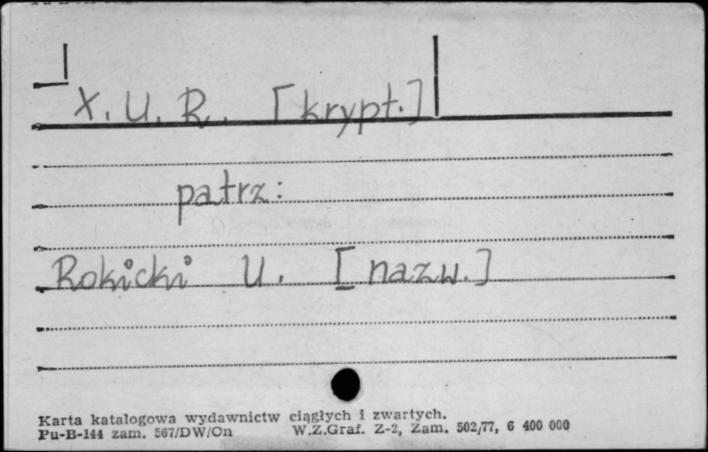 X. U. R. [krypt.]
patrz:
Rokicki U. [nazw.]
Karta katalogowa wydawnictw ciągłych i zwartych.
Pu-B-144 zam. 567/DW/On W.Z.Graf. Z-2, Zam. 502/77, 6 400 000